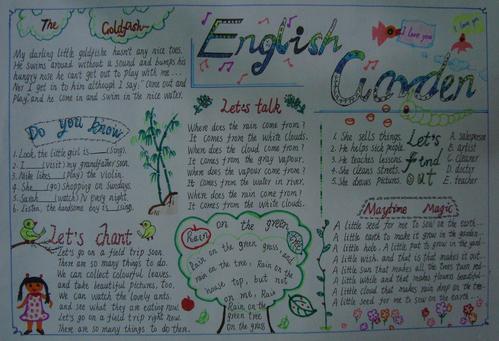 The Goldfish
My darling little goldfish hasn't any nice toes.
He swims around without a sound and bumps his
hungry nose he can't get out to play with me...
Nor I get in to him although I say: "come out and
Play, and he come in and swim in the nice water.
English
Garden
I love you
I love you
Do you know
1. Look, the little girl is (sing).
2. I (visit) my grandfather soon.
3. Mike likes (play) the violin.
4. She (go) shopping on Sundays.
5. Sarah (watch) TV every night.
6. Listen, the handsome boy is (sing).
Let's talk
Where does the rain come from?
It comes from the white clouds.
Where does the cloud come from?
It comes from the gray vapour.
Where does the vapour come from?
It comes from the water in river.
Where does the rain come from?
It comes from the white clouds.
1. She sells things.
2. He helps sick people.
3. He teaches lessons.
4. She cleans streets.
5. She draws pictures.
Let's
find
out
A. salesperson
B. artist
C. cleaner
D. doctor
E. teacher
Let's chant
Let's go on a field trip soon.
There are so many things to do.
We can collect colourful leaves,
and take beautiful pictures, too.
We can watch the lovely ants.
and see what they are eating now.
Let's go on a field trip right now.
There are so many things to do then.
Rain on the green
Rain on the green grass and
rain on the tree. Rain on the
house top, but not
on me. Rain
Rain on the
green tree
On the grass
Maytime Magic
A little seed for me to sow in the earth...
A little earth to make it grow in the garden...
A little hole. A little pat to grow in the
A little wish. and that is that makes it out...
A little sun that makes all the trees
A little while and that makes flowers
A little cloud that makes rain drop on the tree...
A little seed for me to sow on the earth...